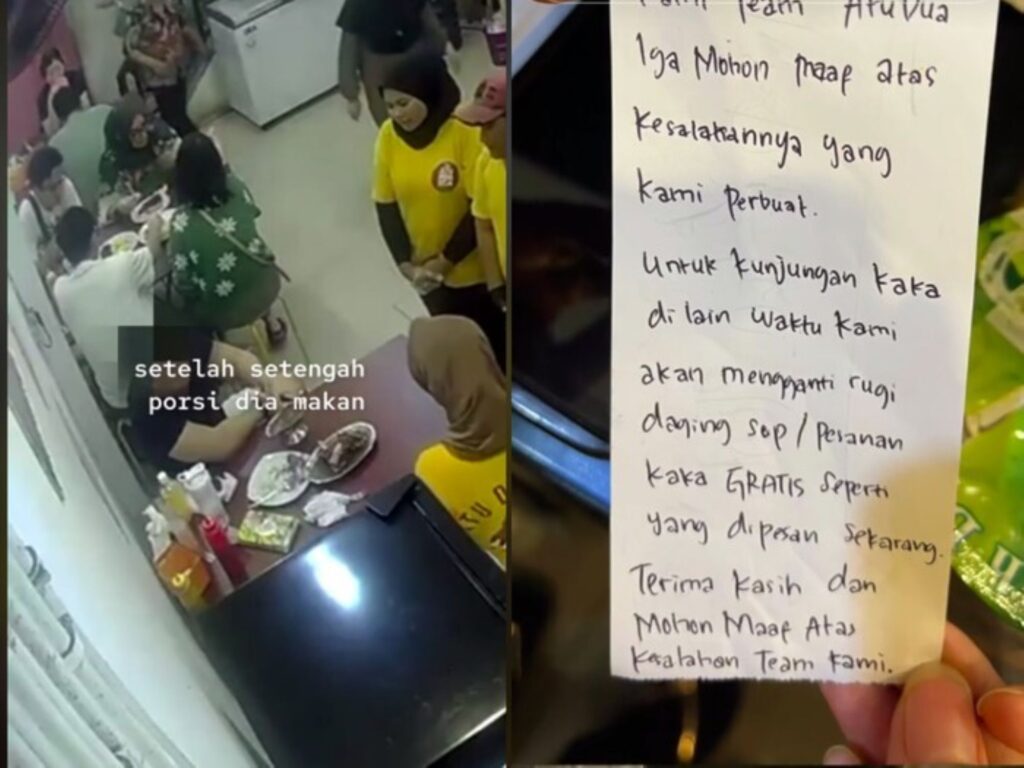 setelah setengah
porsi dia makan
Kami Team
Iga Mohon maaf atas
kesalahannya yang
kami perbuat.
Untuk kunjungan kaka
di lain waktu kami
akan mengganti rugi
daging sop / pesanan
kaka GRATIS seperti
yang dipesan sekarang.
Terima kasih dan
Mohon Maaf Atas
kesalahan Team kami.